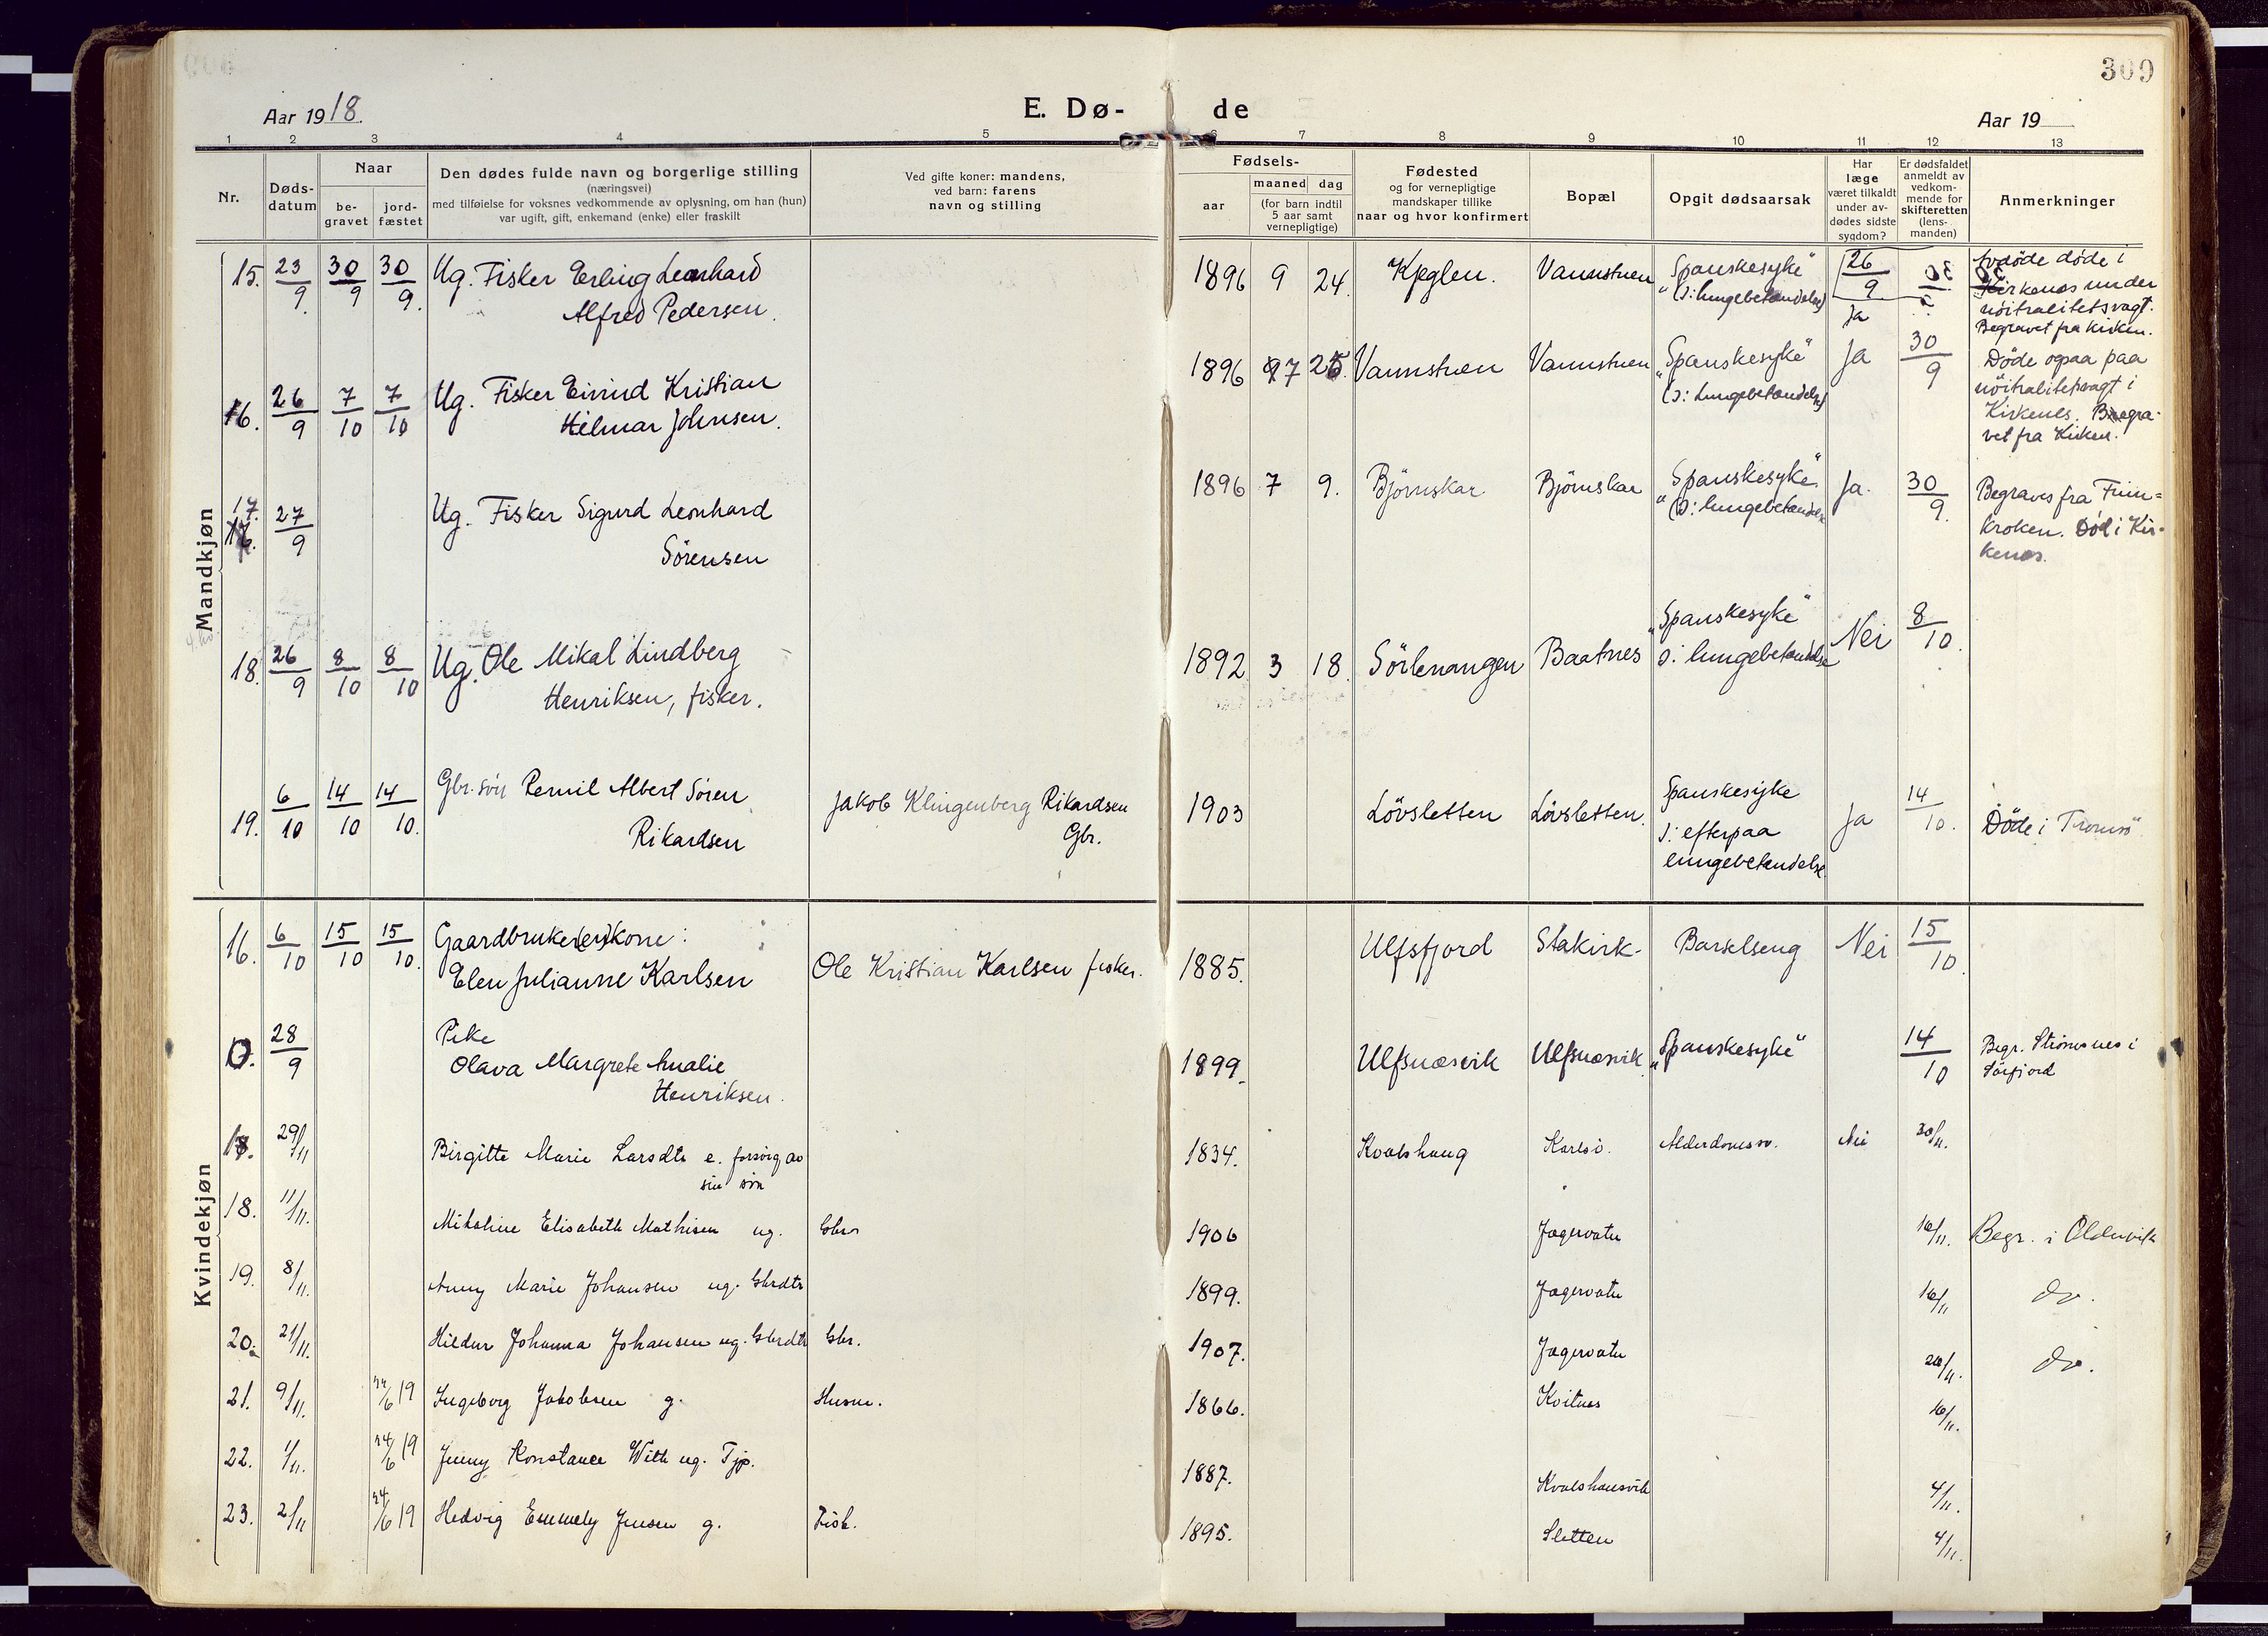 309
Aar 1918.
E. Dø-
de
Aar 19
1 2 3 4 5 6 7 8 9 10 11 12 13
Nr.
Døds-
datum
Naar
be-
gravet
jord-
fæstet
Den dødes fulde navn og borgerlige stilling
(næringsvei)
med tilføielse for voksnes vedkommende av oplysning, om han (hun)
var ugift, gift, enkemand (enke) eller fraskilt
Ved gifte koner: mandens,
ved barn: farens
navn og stilling
Fødsels-
aar
maaned dag
(for barn indtil
5 aar samt
vernepligtige)
Fødested
og for vernepligtige
mandskaper tillike
naar og hvor konfirmert
Bopæl
Opgit dødsaarsak
Har
læge
været tilkaldt
under av-
dødes sidste
sygdom?
Er dødsfaldet
anmeldt av
vedkom-
mende for
skifteretten
(lens-
manden)
Anmerkninger
Mandkjøn
15. 23/9 30/9 30/9. Ug. Fisker Erling Leonhard
Alfred Pedersen.
1896 9 24. Vannstuen "Spanskesyke"
(ɔ: lungebetændelse)
26/9
Ja
Avdøde døde i
Kirkenes under
nöitralitetsvagt.
Begravet fra kirken.
16. 26/9 7/10 7/10 Ug. Fisker Eivind Kristian
Hilmar Johnsen.
1896 7 25. Vannstuen Vannstuen "Spanskesyke"
(ɔ: Lungebetændelse)
Ja 30/9
Döde ogsaa paa
nöitralitetsvagt i
Kirkenes. Begra-
vet fra Kirken.
17. 27/9 Ug. Fisker Sigurd Leonhard
Sörensen
1896 7 9. Björnskar Björnskar "Spanskesyke"
(ɔ: lungebetændelse
Ja. 30/9.
Begraves fra Finn=
kroken. Död i Kir-
kenes.
18. 26/9 8/10 8/10 Ug. Ole Mikal Lindberg
Henriksen, fisker.
1892 3 18. Sörlenangen Baatnes "Spanskesyke"
ɔ: lungebetændelse
Nei 8/10.
19. 6/10 14/10 14/10. Gbr. sön Pernil Albert Sören
Rikardsen
Jakob Klingenberg Rikardsen
Gbr.
1903 Lövsletten Lövsletten. Spanskesyke
ɔ: efterpaa
lungebetændelse.
Ja 14/10. Döde i Tromsö
Kvindekjøn
16. 6/10 15/10 15/10. Gaardbruker(en)kone:
Elen Julianne Karlsen
Ole Kristian Karlsen fisker.
1885. Ulfsfjord Stakirk- Barselseng Nei 15/10.
28/9 Pike
Olava Margrete Amalie
Henriksen.
1899. Ulfsnæsvik Ulfsnæsvik. "Spanskesyke" 14/10
Begr. Strömsnes i
Sörfjord
17. 29/11 Birgitte Marie Larsdtr e. forsörg. av
sin sön
1834. Kvalshaug Karlsö. Alderdomssv. Nei 30/11.
18. 11/11. Mikaline Elisabeth Mathisen ug. Gbr
1906 Jægervatn 16/11. Begr. i Oldervik
19. 8/11. Anny Marie Johansen ug. Gbrdtr
1899. Jægervatn 16/11 do.
20. 21/11. Hildur Johanna Johansen ug. Gbrdtr Gbr.
1907. Jægervatn 20/11. do.
21. 9/11. 24/6 19 Ingeborg Jakobsen g. Husm.
1866. Kvitnes 16/11.
22. 1/11. 24/6 19 Jenny Konstance With ug. Tjp.
1887. Kvalshausvik 4/11.
23. 2/11 24/6 19 Hedvig Emmely Jensen g. Fisk.
1895. Sletten 4/11.